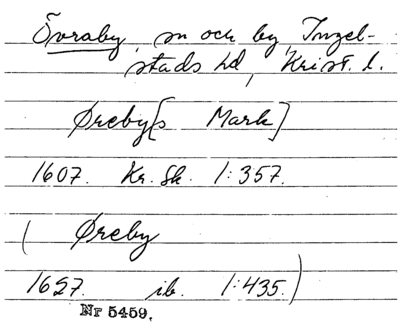 Övraby, sn och by, Ingel-
stads hd, Krist. l.
Øreby[s Mark]
1607. Kr. Sk. 1:357.
( Øreby
1657. ib. 1:435.)
Nr 5459.